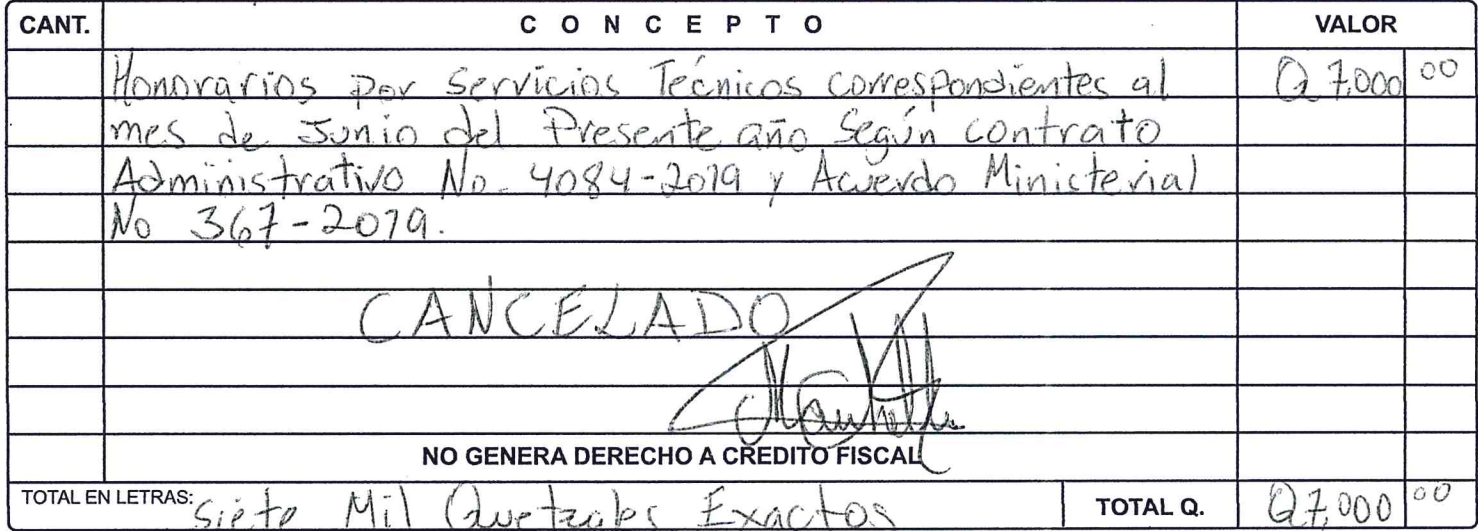 CANT. CONCEPTO VALOR
Honorarios por Servicios Técnicos correspondientes al Q 7,000 00
mes de Junio del Presente año Según contrato
Administrativo No. 4084-2019 y Acuerdo Ministerial
No 367-2019.
CANCELADO
NO GENERA DERECHO A CREDITO FISCAL
TOTAL EN LETRAS: Siete Mil Quetzales Exactos TOTAL Q. Q7,000 00